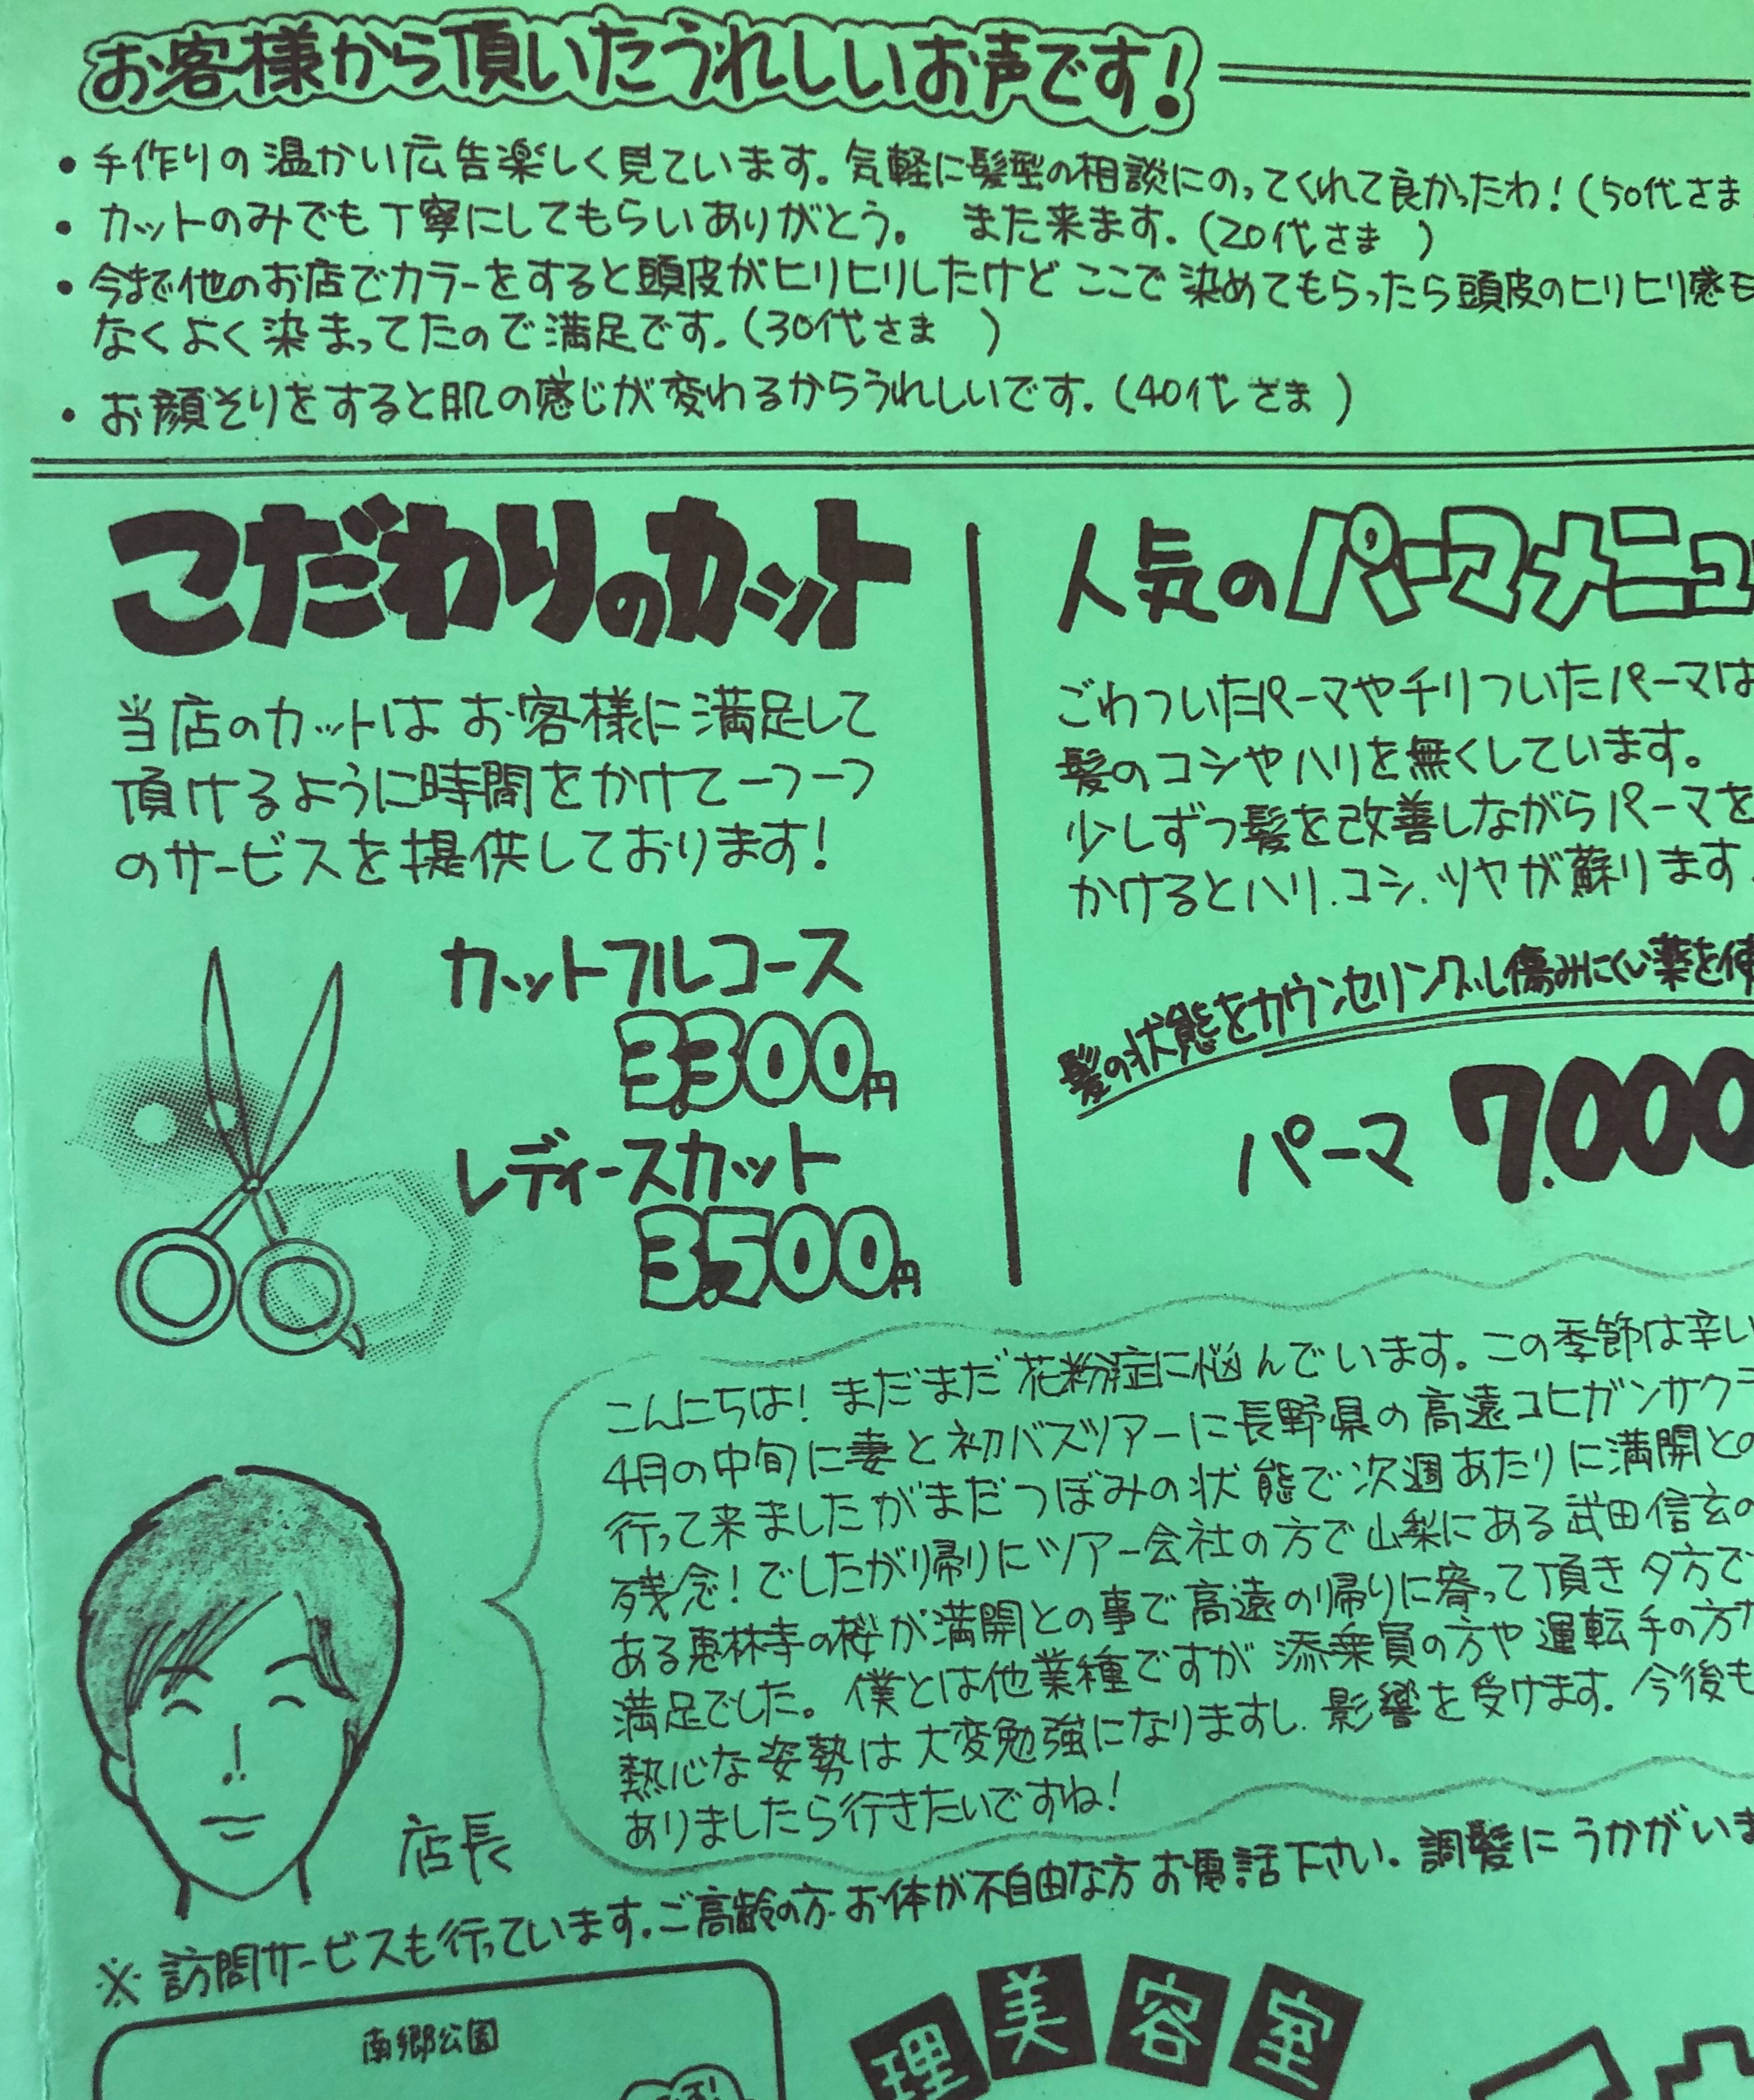 お客様から頂いたうれしいお声です!
• 手作りの温かい広告楽しく見ています。気軽に髪型の相談にのってくれて良かったわ!(50代さま
• カットのみでも丁寧にしてもらいありがとう。 また来ます.(20代さま )
• 今まで他のお店でカラーをすると頭皮がヒリヒリしたけど ここで染めてもらったら頭皮のヒリヒリ感も
なくよく染まってたので満足です.(30代さま )
• お顔そりをすると肌の感じが変わるからうれしいです.(40代さま )
こだわりのカット
当店のカットはお客様に満足して
頂けるように時間をかけて一つ一つ
のサービスを提供しております!
カットフルコース
3,300円
レディースカット
3,500円
人気のパーマメニュ
ごわついたパーマやチリついたパーマは
髪のコシやハリを無くしています。
少しずつ髪を改善しながらパーマを
かけるとハリ.コシ.ツヤが蘇ります.
髪の状態をカウンセリングし傷みにくい薬を使
パーマ 7,000
こんにちは! まだまだ花粉症に悩んでいます。この季節は辛い
4月の中旬に妻と初バスツアーに長野県の高遠コヒガンサクラ
行って来ましたがまだつぼみの状態で次週あたりに満開との
残念!でしたが帰りにツアー会社の方で山梨にある武田信玄の
ある恵林寺の桜が満開との事で高遠の帰りに寄って頂き夕方で
満足でした。僕とは他業種ですが添乗員の方や運転手の方
熱心な姿勢は大変勉強になりますし.影響を受けます.今後も
ありましたら行きたいですね!
店長
※訪問サービスも行っています.ご高齢の方.お体が不自由な方お電話下さい.調髪にうかがいま
南郷公園
理美容室